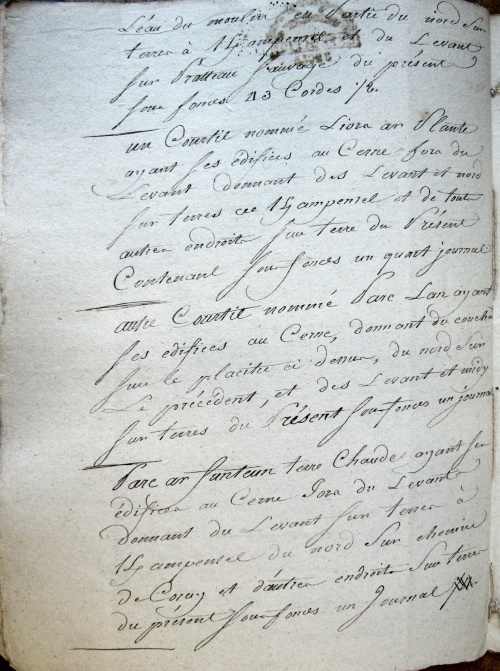 L'eau du moulin en Partie du nord sur
terres à Kampensel et du Levant
sur Pratteau Sauvage du présent
sous fonces 13 Cordes 1/2.
un Courtil nommé Liora ar Plante
ayant ses édifices au Cerne fors du
Levant donnant des Levant et nord
sur terres de Kampensel et de toute
autres endroits sur terre du Présent
Contenant sous fonces un quart journal
autre Courtil nommé Parc Lan ayant
ses édifices au Cerne, donnant du couch
sur le placitre ci denne, du nord sur
Le précédent, et des Levant et midy
sur terres du Présent sous fonces un journal
Parc ar funteun terre Chaude ayant ses
édifices au Cerne fors du Levant
donnant du Levant sur terres à
Kampensel du nord sur chemin
de Coray et d'autres endroits sur terre
du présent sous fonces un Journal